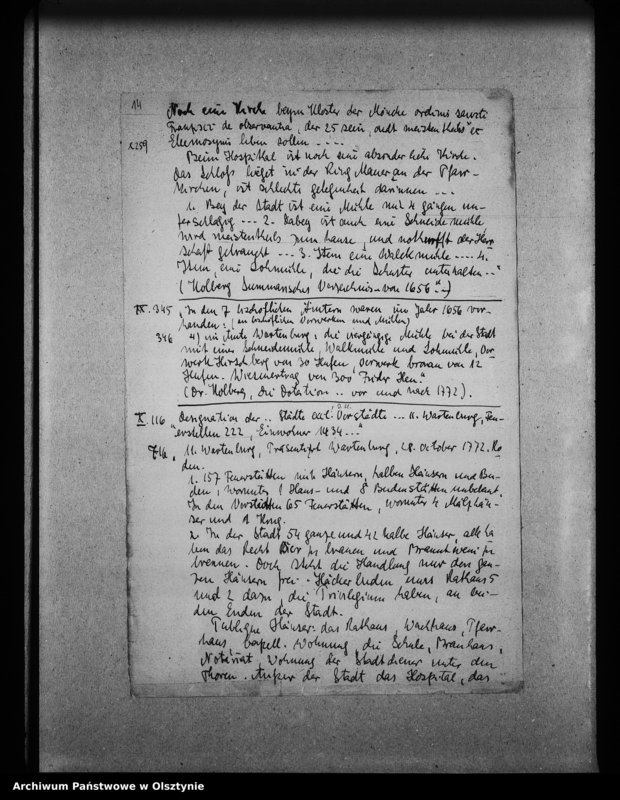 14
Noch eine Kirche beym Kloster der Mönche ordinis sancti
Francisci de observantia, der 25 sein, und meisten theils
X 259
Eleemosynis leben sollen ....
Beim Hospital ist noch eine absonderliche Kirche.
Das Schloß lieget in der Ring Mauer an der Pfarr-
kirchen, ist schlechte gelegenheit darinnen ...
1. Bey der Stadt ist eine Mühle mit 4 gängen un-
terschlägig ... 2. Dabey ist auch eine Schneidemühle
wird meistentheils zum hause, und der Herr
schaft gebraucht ... 3. Item eine Walckmühle .... 4.
Item eine Lohmühle, die die Schuster unterhalten..."
(Kolberg Summarisches Verzeichnis von 1656 ..)
IX. 345 „In den 7 bischöflichen Ämtern waren im Jahr 1656 vor-
handen: (an bischöflichen Vorwerken und Mühlen)
346 4) im Amte Wartenburg: die viergängige Mühle bei der Stadt
mit einer Schneidemühle, Walkmühle und Lohmühle, Vor
werk Hirschberg von 30 Hufen, Vorwerk von 12
Hufen. Wiesenertrag von 300 Fuder Heu."
(Dr. Kolberg, Die Dotation .. vor und nach 1772).
X. 116 Designation der .. Städte excl. d. Vorstädte ... 11. Wartenburg, Feu-
"erstellen 222, Einwohner 1434 ..."
716, 11. Wartenburg, Präsentirt Wartenburg, 28. October 1772.
den.
1. 157 Feuerstätten mit Häusern, halben Häusern und Bu-
den, worunter 1 Haus- und 8 Budenstätten unbebaut.
In den Vorstädten 65 Feuerstätten, worunter 4 Mälzhäu-
ser und 1 Krug.
2. In der Stadt 54 ganze und 42 halbe Häuser, alle ha
ben das Recht Bier zu brauen und Branntwein zu
brennen. Doch steht die Handlung nur den gan-
zen Häusern frei. Häckerbuden ums Rathaus 5
und 2 dazu, die Privilegium haben, an bei-
den Enden der Stadt.
Publique Häuser: das Rathaus, Wachhaus, Pfarr-
haus, Wohnung, die Schule, Brauhaus,
Notariat, Wohnung der Stadtdiener unter den
Thoren. Außer der Stadt das Hospital, das
Archiwum Państwowe w Olsztynie